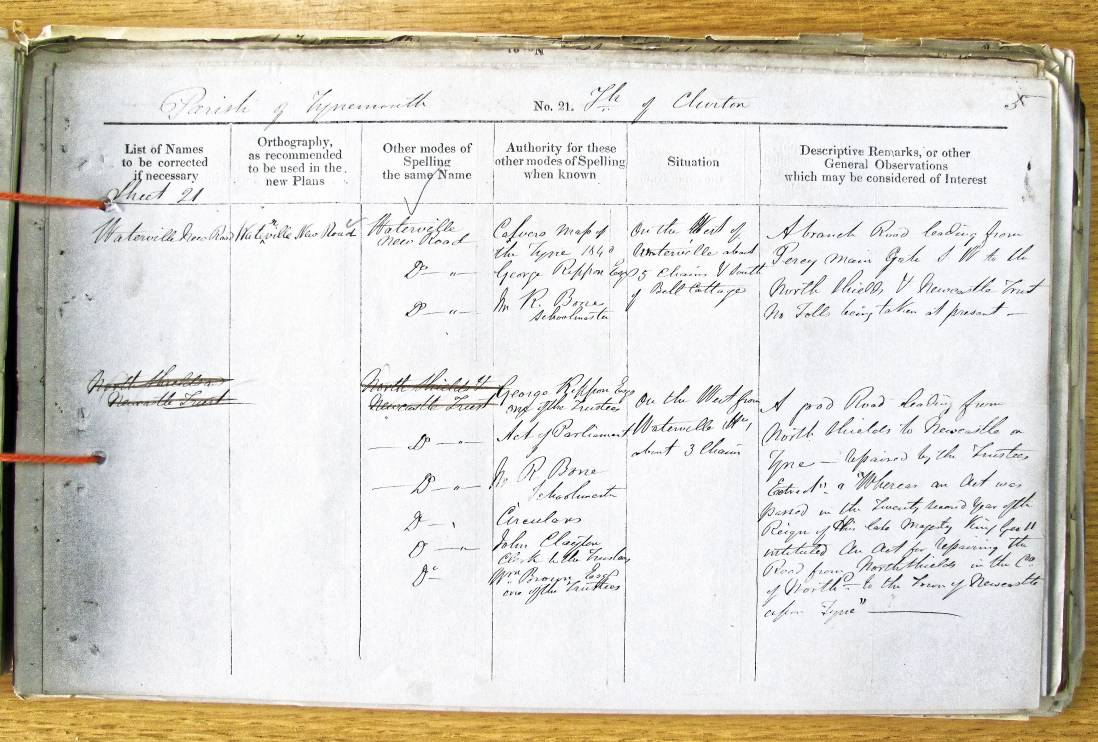 Parish of Tynemouth No. 21. Tp. of Chirton 5
List of Names
to be corrected
if necessary
Orthography,
as recommended
to be used in the
new Plans
Other modes of
Spelling
the same Name
Authority for these
other modes of Spelling
when known
Situation
Descriptive Remarks, or other
General Observations
which may be considered of Interest
Sheet 21
Waterville New Road
Waterville New Road
Waterville
New Road
Do "
Do "
Calvers Map of
the Tyne 1840
George Rippon Esq
Mr R. Bone
Schoolmaster
On the West of
Waterville about
5 Chains & South
of Bell Cottage
A branch Road leading from
Percy Main Gate S W to the
North Shields & Newcastle Trust
No Tolls being taken at present
North Shields &
Newcastle Trust
North Shields &
Newcastle Trust
Do "
Do "
Do "
Do "
Do
George Rippon Esq
one of the Trustees
Act of Parliament
Mr R Bone
Schoolmaster
Circulars
John Clayton
Clerk to the Trustees
Wm Brown Esqr
one of the Trustees
On the West from
Waterville Ho,
about 3 Chains
A good Road leading from
North Shields to Newcastle on
Tyne — repaired by the Trustees
Extract "Whereas an Act was
passed in the Twenty second Year of the
Reign of His late Majesty King Geo II
intituled An Act for repairing the
Road from North Shields in the Co.
of Northd to the Town of Newcastle
upon Tyne"